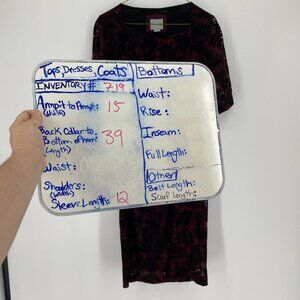 Tops, Dresses, Coats
INVENTORY# 719
Armpit to Armpit: 15
(Width)
Back Collar to
Bottom of Hem: 39
(Length)
Waist:
Shoulders:
(Width)
Sleeve Length: 12
Bottoms
Waist:
Rise:
Inseam:
Full Length:
Other
Belt Length:
Scarf Length: